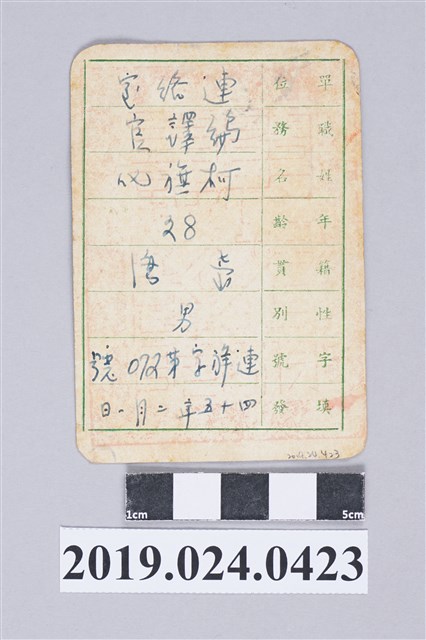 單位 連絡室
職務 編譯官
姓名 柯旗化
年齡 28
籍貫 臺灣
性別 男
字號 連譯字第072號
填發 四十五年二月一日
2019.24.423
1cm 5cm
2019.024.0423